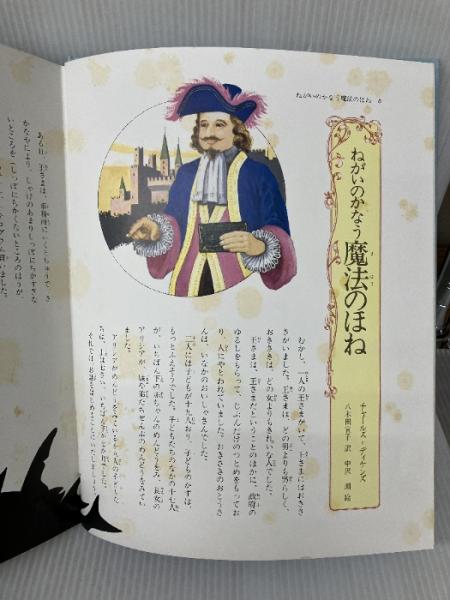 ねがいのかなう魔法のほね 6
ねがいのかなう魔法のほね
まほう
チャールズ・ディケンズ
八木田宜子 訳 中沢 潮 絵
むかし、一人の王さまがいて、王さまにはおきさ
きがいました。王さまは、どの男よりも男らしく、
おきさきは、どの女よりもきれいな人でした。
王さまは、王さまだということのほかに、政府の
ゆるしをもらって、じぶんだけのつとめをもってお
り、人にやとわれていました。おきさきのおとうさ
んは、いなかのおいしゃさんでした。
二人には子どもが十九人おり、子どものかずは、
もっとふえそうでした。子どもたちのなかの十七人
が、いちばん下の赤ちゃんのめんどうをみ、長女の
アリシアが、妹や弟たちぜんぶのめんどうをみてい
ある日、王さまは、事務所にいくとちゅうで、さ
かなやにより、しゃけのあまりしっぽにちかすぎな
いところを(しっぽにちかくないところのほうが